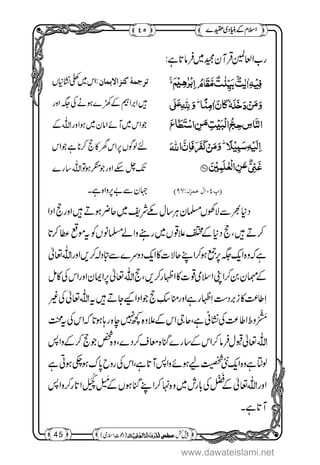 اسلام کے بنیادی عقیدے
۴۵
ربّ العالمین قرآنِ مجید میں فرماتا ہے:
فِیْهِ اٰیٰتٌۢ بَیِّنٰتٌ مَّقَامُ اِبْرٰهِیْمَ ۚ۬
وَ مَنْ دَخَلَهٗ كَانَ اٰمِنًاؕ-وَ لِلّٰهِ عَلَى
النَّاسِ حِجُّ الْبَیْتِ مَنِ اسْتَطَاعَ
اِلَیْهِ سَبِیْلًاؕ-وَ مَنْ كَفَرَ فَاِنَّ اللّٰهَ
غَنِیٌّ عَنِ الْعٰلَمِیْنَ(۹۷)
ترجمۂ کنزالایمان: اس میں کھلی نشانیاں
ہیں ابراہیم کے کھڑے ہونے کی جگہ اور
جو اس میں آئے امان میں ہو اور اللہ کے
لئے لوگوں پر اس گھر کا حج کرنا ہے جو اس
تک چل سکے اور جو منکر ہو تو اللہ سارے
جہان سے بے پرواہ ہے۔
(پ۴، اٰل عمرٰن: ۹۷)
دنیا بھر سے لاکھوں مسلمان ہر سال مکے شریف میں حاضر ہوتے ہیں اور حج ادا
کرتے ہیں، حج دنیا کے مختلف علاقوں میں رہنے والے مسلمانوں کو یہ موقع عطا کرتا
ہے کہ وہ ایک جگہ پر جمع ہو کر اپنے حالات کا ایک دوسرے سے تبادلہ کریں اور اللہ تعالیٰ
کے مہمان بن کر اپنی اسلامی قوت کا اظہار کریں، حج اللہ تعالیٰ پر ایمان اور اس کی کامل
اطاعت کا زبردست اظہار ہے اور مناسکِ حج ادا کیے جاتے ہیں یہ اللہ تعالیٰ کی غیر
مشروط اطاعت کی نشانی ہے، حاجی اس کے علاوہ کچھ نہیں چاہ رہا ہوتا کہ اس کا یہ تحفہ
اللہ تعالیٰ قبول فرما کر اس کے سارے گناہ معاف کردے، وہ شخص جو حج کر کے واپس
لوٹتا ہے وہ ایک نئی شخصیت لیے ہوئے واپس آتا ہے، اس کی روح پاک ہو چکی ہوتی ہے
اور اللہ تعالیٰ کے فضل کی بارش میں وہ نہا کر اپنے گناہوں کے میل کچیل کو اتار کر واپس
آتا ہے۔
45
www.dawateislami.net